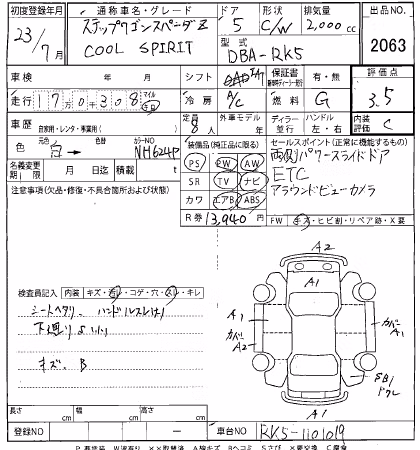 初度登録年月 通称車名・グレード ドア 形状 排気量 出品NO.
23/7月 ステップワゴンスパーダZ 5 C/W 2,000cc 2063
COOL SPIRIT 型式 DBA-RK5
車検 年 月 シフト 保証書 有・無 評価点
走行 17万0308 マイル Km 冷房 A/C 燃料 G 3.5
車歴 自家用・レンタ・事業用( ) 定員 8人 外車モデル 年 ディーラー 並行 ハンドル 左・右 内装評価 C
色 白→ カラーNO NH624P 装備品(純正品に限る) セールスポイント(正常に機能するもの)
名義変更期限 月 日迄 積載 t PS PW AW 両側パワースライドドア
注意事項(欠品・修復・不具合箇所および状態) SR TV ナビ ETC
カワ エアB ABS アラウンドビューカメラ
R券 13,940円 FW キズ・ヒビ割・リペア跡・X要
A2
A1
検査員記入 内装 キズ・汚レ・コゲ・穴・スレ・キレ
シートヘタリ、ハンドルスレ
下廻り
キズ、B
A1 カバー A2
カバー A1
A1
長さ cm 幅 cm 高さ cm
登録NO 車台NO RK5-1101019